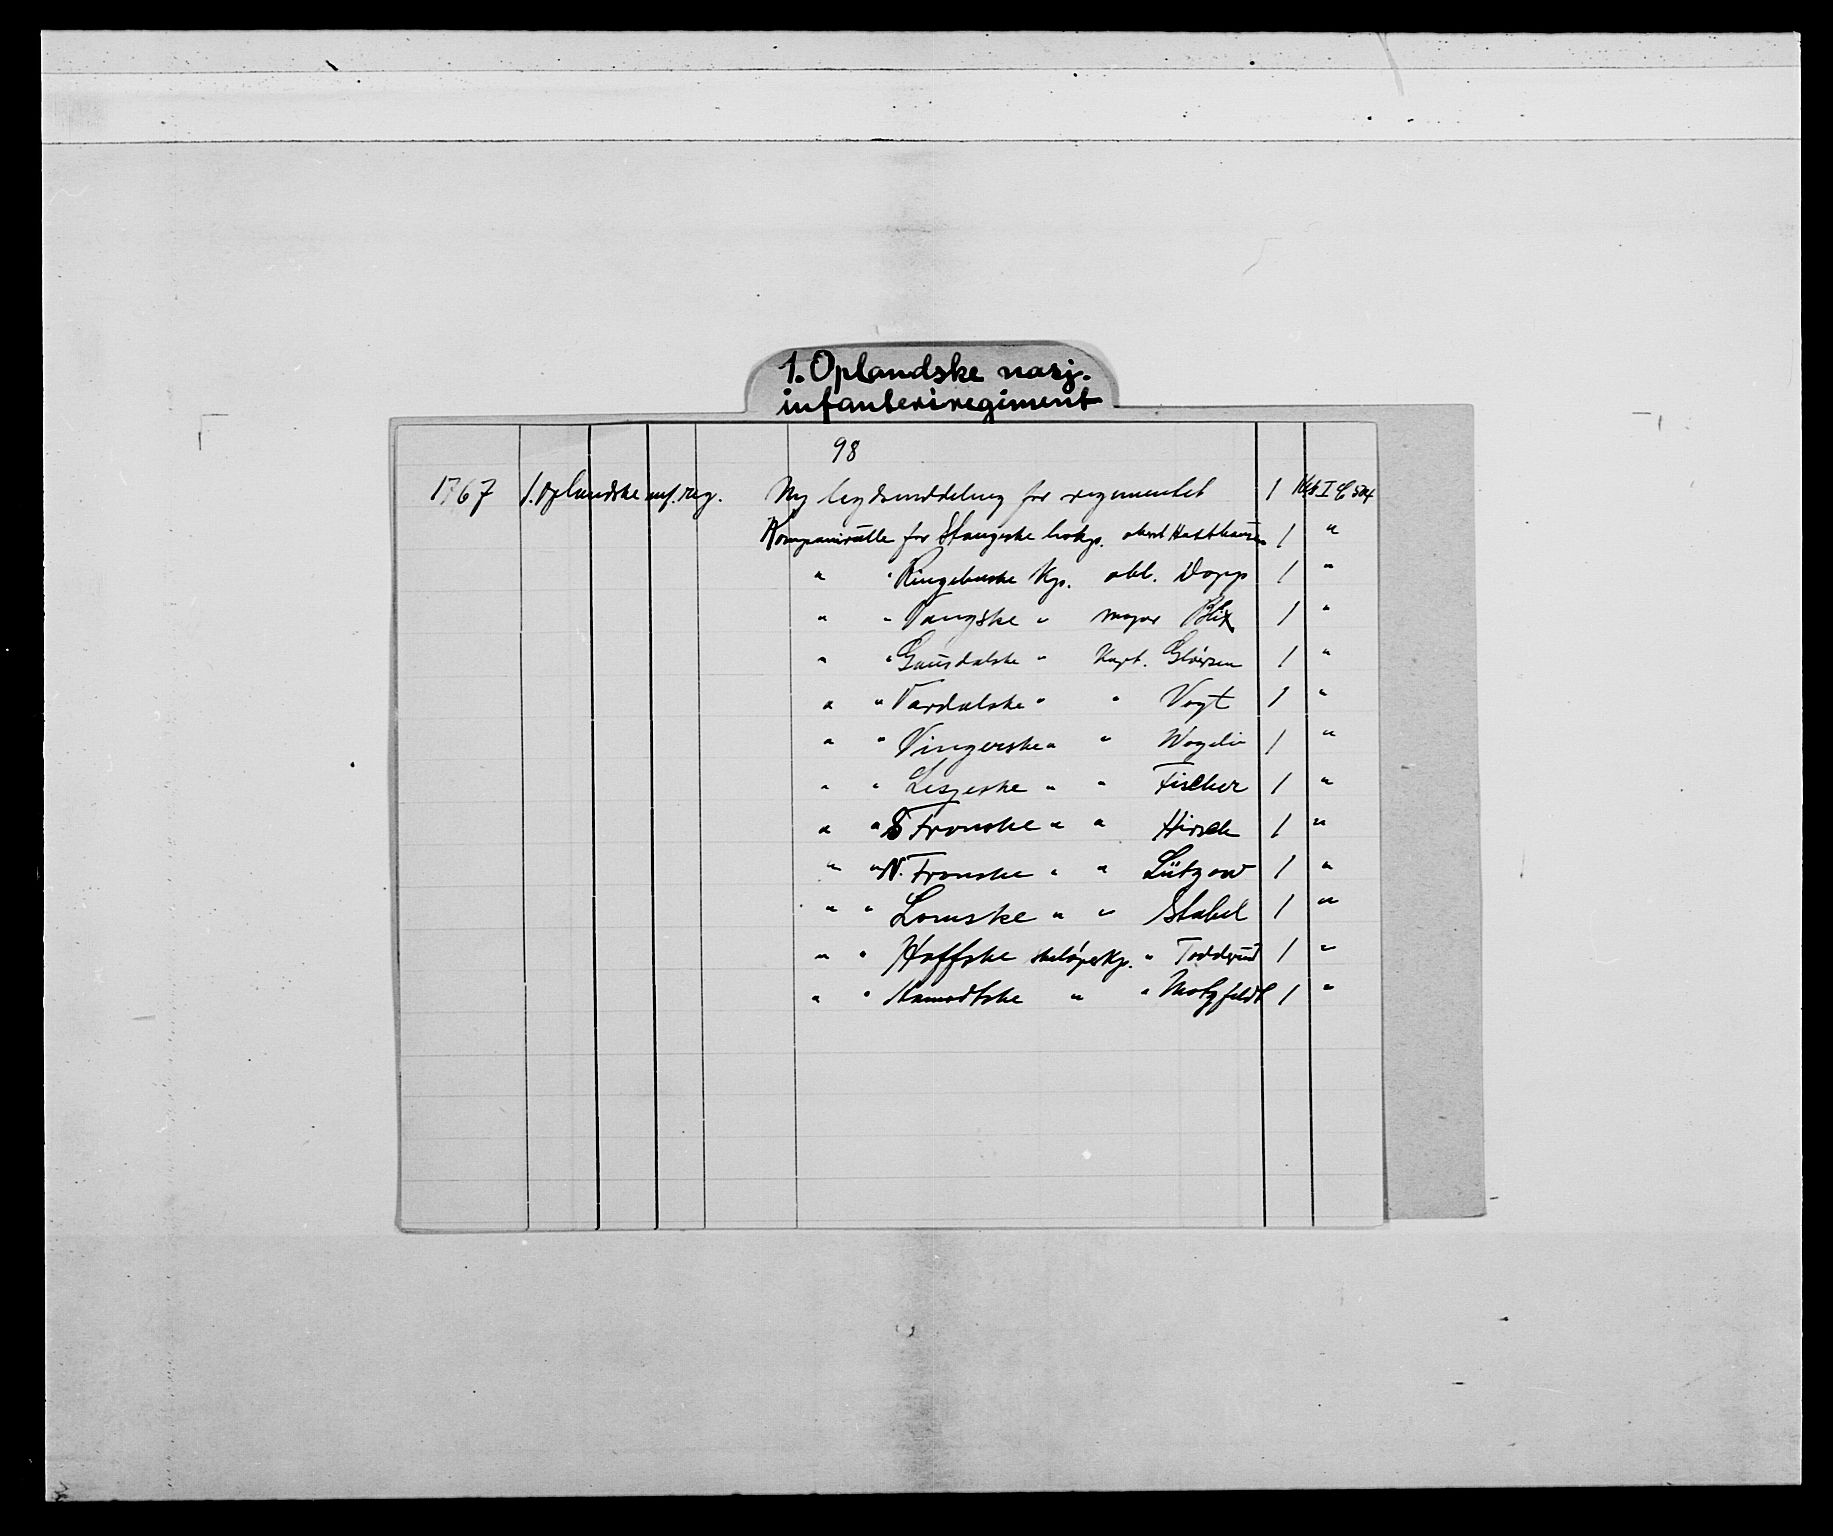 1. Oplandske nasj.
infanteriregiment
98
1767 1. Oplandske inf. reg. Ny legdsinddeling for regimentet 1
Kompanirulle for Stangeske livkp. oberst Haxthausen 1 "
" " Ringebuske kp. obl. Dopp 1 "
" " Vangske " major Blix 1 "
" " Gausdalske " Kapt. Glörsen 1 "
" " Vardalske " " Vogt 1 "
" " Vingerske " " 1 "
" " Lesjeske " " Fischer 1 "
" " S Fronske " " Hirsch 1 "
" " N. Fronske " " Lützow 1 "
" " Lomske " " Stabel 1 "
" " Hoffske skiløperkp. " Todderud 1 "
" " " " Motzfeldt 1 "